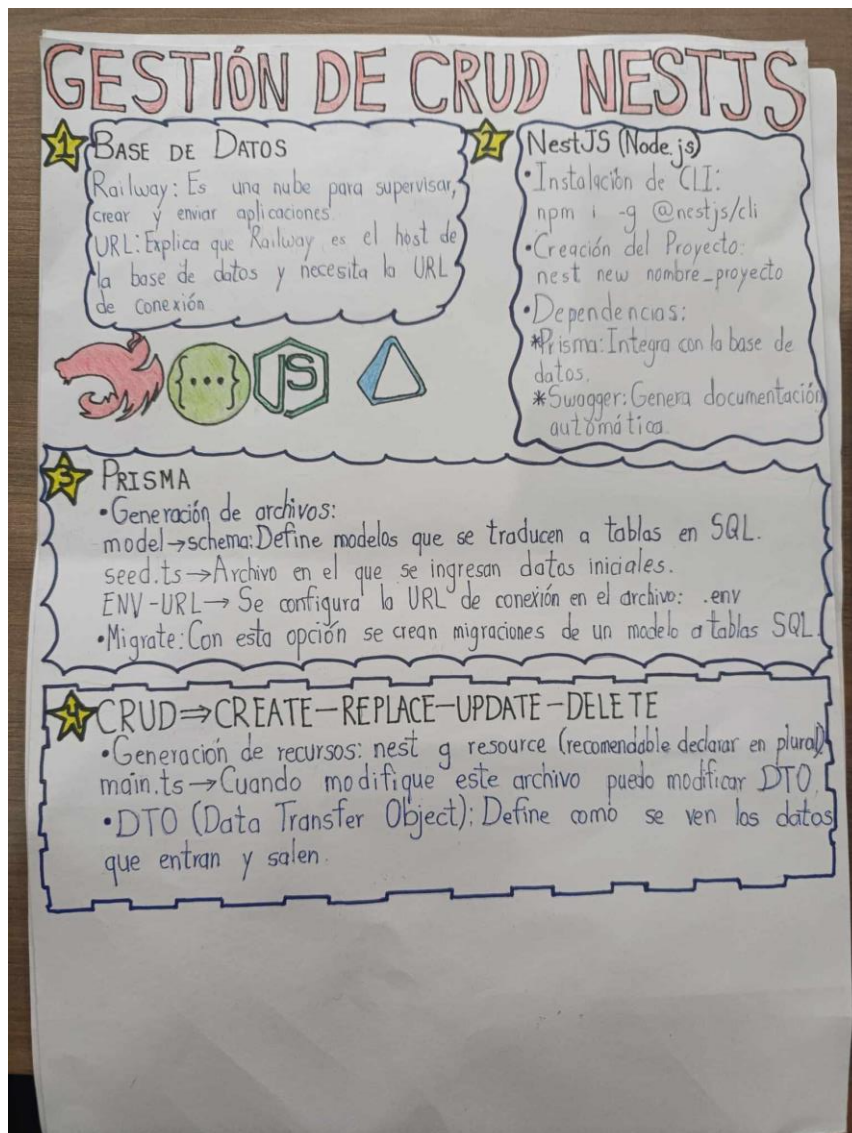 GESTIÓN DE CRUD NESTJS
1 BASE DE DATOS
Railway: Es una nube para supervisar,
crear y enviar aplicaciones
URL: Explica que Railway es el host de
la base de datos y necesita la URL
de conexión
2 NestJS (Node.js)
•Instalación de CLI:
npm i -g @nestjs/cli
•Creación del Proyecto:
nest new nombre_proyecto
•Dependencias:
*Prisma: Integra con la base de
datos.
*Swagger: Genera documentación
automática.
{...}
JS
3 PRISMA
•Generación de archivos:
model→schema: Define modelos que se traducen a tablas en SQL.
seed.ts→Archivo en el que se ingresan datos iniciales.
ENV-URL→ Se configura la URL de conexión en el archivo: .env
•Migrate: Con esta opción se crean migraciones de un modelo a tablas SQL.
4 CRUD⇒CREATE-REPLACE-UPDATE-DELETE
•Generación de recursos: nest g resource (recomendable declarar en plural)
main.ts→Cuando modifique este archivo puedo modificar DTO.
•DTO (Data Transfer Object): Define como se ven los datos
que entran y salen.